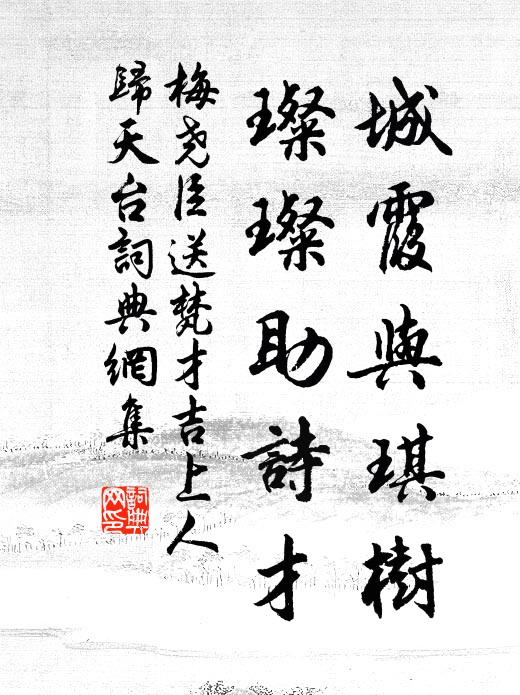 城霞與琪樹
璨璨助詩才
梅堯臣送梵才吉上人
歸天台詞典網集
詞典
网印